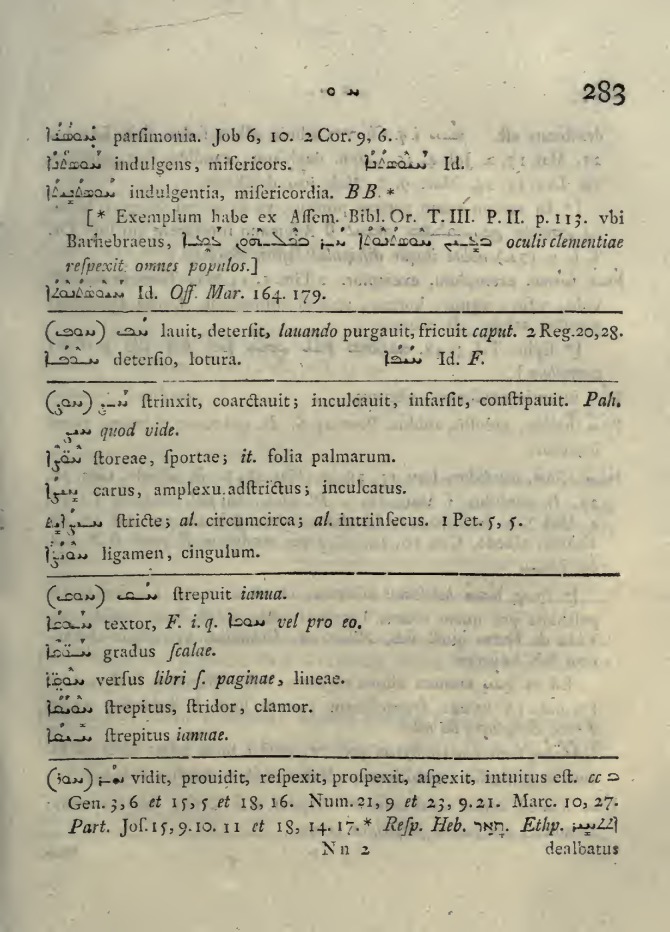 ܚ ܘ 283
ܚܘܣܢܐ parſimonia. Job 6, 10. 2 Cor. 9, 6.
ܚܘܣܬܢܐ indulgens, miſericors. Id.
indulgentia, miſericordia. B B. *
[* Exemplum habe ex Aſſem. Bibl. Or. T. III. P. II. p. 113. vbi
Barhebraeus, oculis clementiae
reſpexit omnes populos.]
Id. Off. Mar. 164. 179.
(ܚܘܦ) ܚܦ lauit, deterſit, lauando purgauit, fricuit caput. 2 Reg. 20, 28.
ܚܘܦܐ deterſio, lotura. Id. F.
(ܚܘܨ) ܚܨ ſtrinxit, coarctauit; inculcauit, infarſit, conſtipauit. Pah.
ܚܝܨ quod vide.
ܚܘܨܐ ſtoreae, ſportae; it. folia palmarum.
ܚܝܨܐ carus, amplexu adſtrictus; inculcatus.
ܚܝܨܐܝܬ ſtricte; al. circumcirca; al. intrinſecus. 1 Pet. 5, 5.
ligamen, cingulum.
(ܚܘܩ) ܚܩ ſtrepuit ianua.
textor, F. i. q. vel pro eo.
gradus ſcalae.
verſus libri ſ. paginae, lineae.
ſtrepitus, ſtridor, clamor.
ſtrepitus ianuae.
(ܚܘܪ) ܚܪ vidit, prouidit, reſpexit, proſpexit, aſpexit, intuitus eſt. cc ܒ
Gen. 3, 6 et 15, 5 et 18, 16. Num. 21, 9 et 23, 9. 21. Marc. 10, 27.
Part. Joſ. 15, 9. 10. 11 et 18, 14. 17.* Reſp. Heb. תאר. Ethp.
N n 2 dealbatus